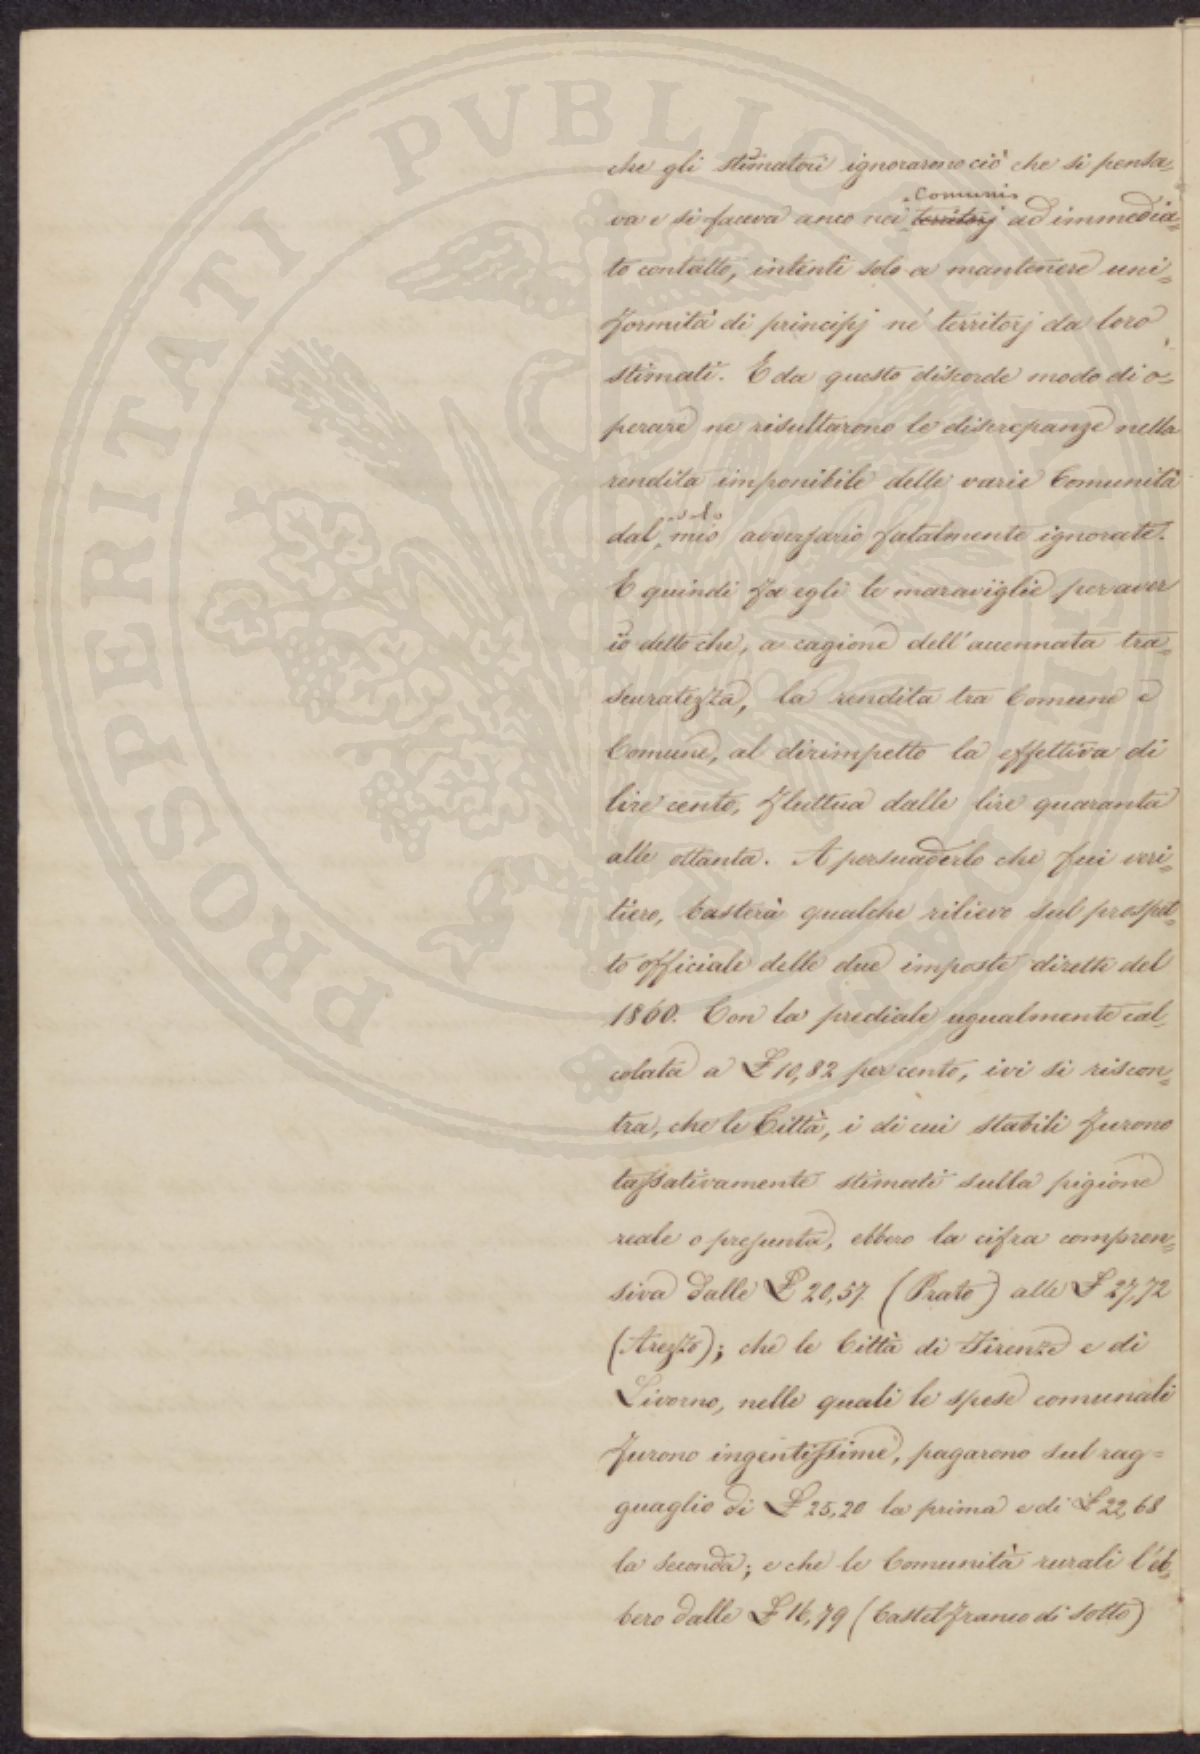 che gli stimatori ignorarono ciò che si pensa-
va e si faceva anco nei Comuni territorj ad immedia-
to contatto, intenti solo a mantenere uni-
formità di principj ne' territorj da loro
stimati. E da questo discorde modo di o-
perare ne risultarono le discrepanze nella
rendita imponibile delle varie Comunità
dal mio avversario fatalmente ignorate.
E quindi fa egli le maraviglie per aver
io detto che, a cagione dell'accennata tra-
scuratezza, la rendita tra Comune e
Comune, al dirimpetto la effettiva di
lire cento, fluttua dalle lire quaranta
alle ottanta. A persuaderlo che fui veri-
tiero, basterà qualche rilievo sul prospet-
to officiale delle due imposte dirette del
1860. Con la prediale ugualmente cal-
colata a £ 10,82 per cento, ivi si riscon-
tra, che le Città, i di cui stabili furono
tassativamente stimati sulla pigione
reale o presunta, ebbero la cifra compren-
siva dalle £ 20,57 (Prato) alle £ 27,72
(Arezzo); che le Città di Firenze e di
Livorno, nelle quali le spese comunali
furono ingentissime, pagarono sul rag-
guaglio di £ 25,20 la prima e di £ 22,68
la seconda; e che le Comunità rurali l'eb-
bero dalle £ 16,79 (Castelfranco di sotto)
PROSPERITATI PVBLICAE AVGENDAE